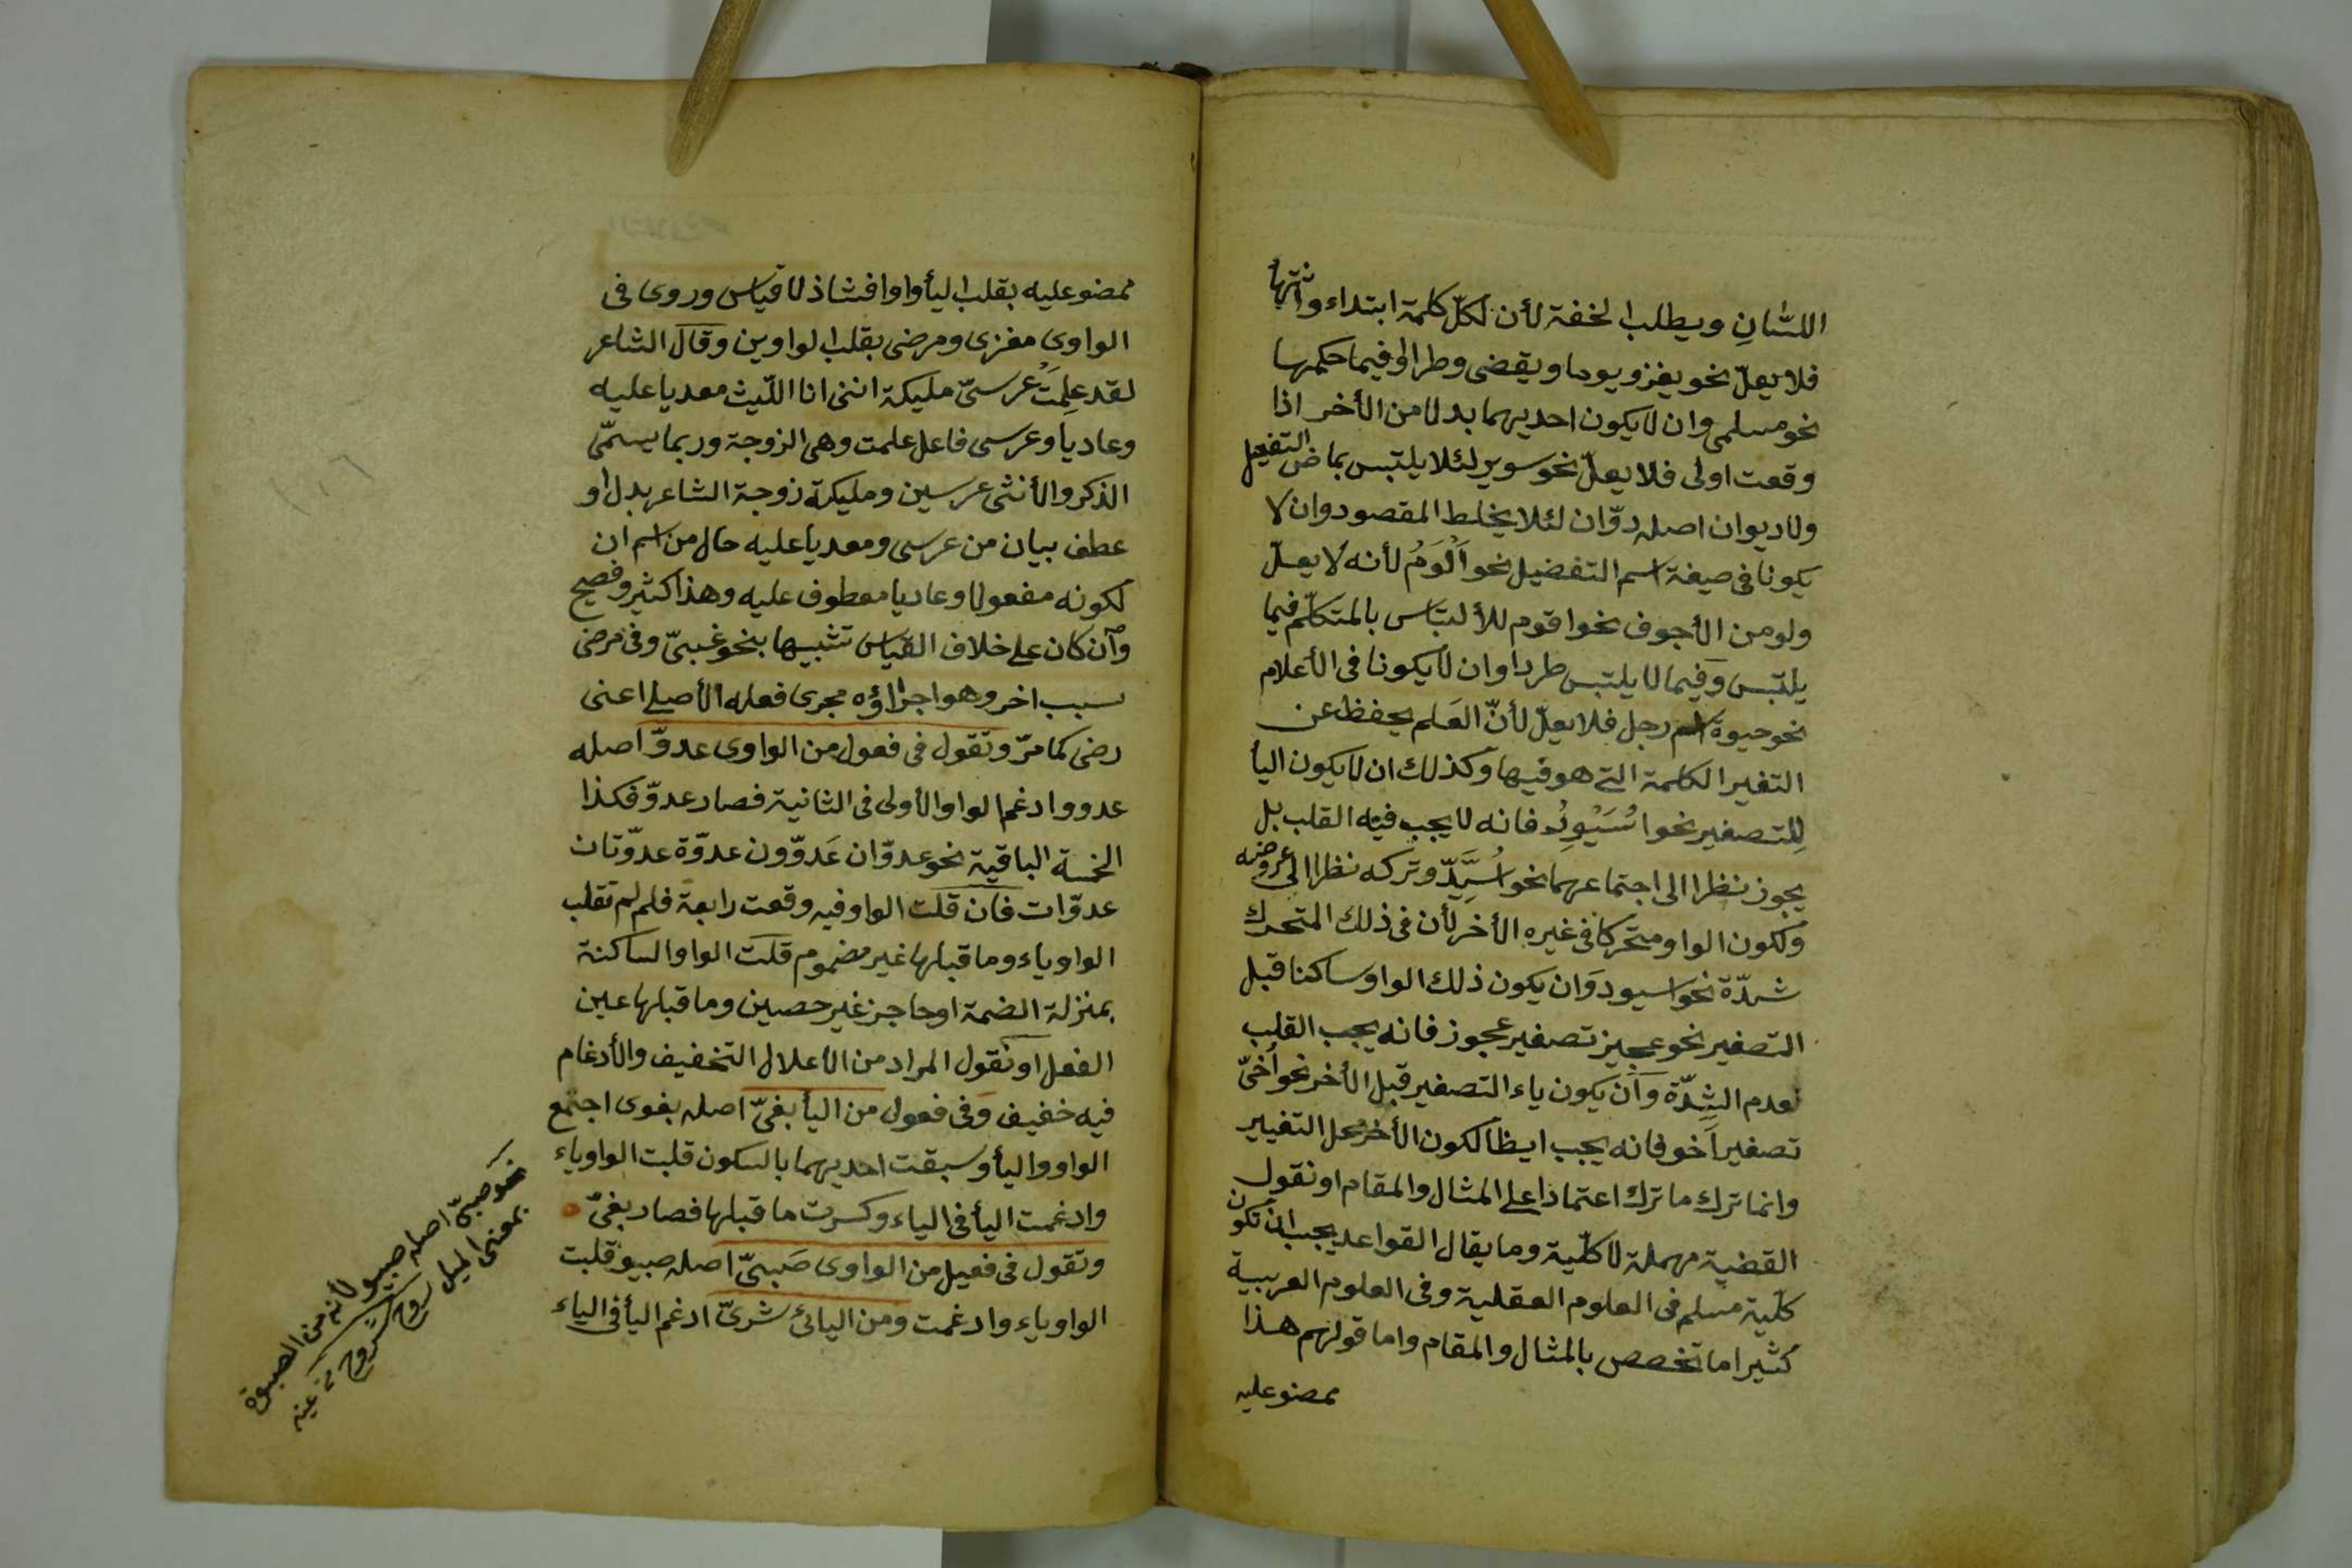 اللسّانِ ويطلب الخفة لأن لكلّ كلمة ابتداء وانتهاء
فلا يعلّ نحو يغزو يوما ويقضى وطرا او فيما حكمها
نحو مسلمى وان لا يكون احديهما بدلا من الأخر اذا
وقعت اولى فلا يعلّ نحو سوير لئلا يلتبس بماض التفعيل
ولا ديوان اصله دوّان لئلا يخلط المقصود وان لا
يكونا فى صيغة اسم التفضيل نحو اَلْوَمُ لأنه لا يعلّ
ولو من الأجوف نحو اقوم للألتباس بالمتكلّم فيما
يلتبس وفيما لا يلتبس طردا وان لا يكونا فى الأعلام
نحو حيوة اسم رجل فلا يعلّ لأنّ العَلم يحفظ عن
التغير الكلمة التى هو فيها وكذلك ان لا يكون اليأ
لِلتصغير نحو اُسَيْوِدُ فانه لا يجب فيه القلب بل
يجوز نظرا الى اجتماعهما نحو اُسَيِّدّ وتركه نظرا الى عروضه
ولكون الواو متحركا فى غيره الأخر لأن فى ذلك المتحرك
شدّة نحو اسيود وَان يكون ذلك الواو ساكنا قبل
التصغير نحو عجيز تصغير عجوز فانه يجب القلب
لعدم الشِدّة وَآن يكون ياء التصغير قبل الأخر نحو أُخَىّ
تصغير اَخو فانه يجب ايظا لكون الأخر محل التغيير
وانما ترك ما ترك اعتماذا على المثال والمقام او نقول
القضية مهملة لا كلّية وما يقال القواعد يجب ان تكون
كلّية مسلم فى العلوم العقلية وفى العلوم العربية
كثيرا ما تخصص بالمثال والمقام واما قولهم هذا
ممضو عليه
ممضو عليه بقلب اليأ واوا فشاذ لا قياس وروى فى
الواوى مغزى ومرضى بقلب الواوين وقال الشاعر
لقد عِلمَتْ عرسىّ مليكة اننى انا اللّيث معديا عليه
وعاديا وعرسى فاعل علمت وهى الزوجة وربما يسمّى
الذكر والأنثى عرسين ومليكة زوجة الشاعر بدل او
عطف بيان من عرسى ومعديا عليه حال من اسم ان
لكونه مفعولا وعاديا معطوف عليه وهذا كثير وفصيح
وآن كان على خلاف القياس تشبيها بنحو غبىّ وفى مرضى
سبب اخر وهو اجراؤه مجرى فعله الأصلى اعنى
رضى كما مرّ وتقول فى فعول من الواوى عدوّ اصله
عدوو ادغم الواو الأولى فى الثانية فصار عدوّ فكذا
الخمسة الباقية نحو عدوّان عَدوّون عدوّة عدوّتان
عدوّات فان قلت الواو فيه وقعت رابعة فلم لم تقلب
الواو ياء وما قبلها غير مضموم قلت الواو الساكنة
بمنزلة الضمة او حاجز غير حصين وما قبلها عين
الفعل او نقول المراد من الأعلال التخفيف والأدغام
فيه خفيف وفى فعول من اليأ بغىّ اصله بغوى اجتمع
الواو واليأ وسبقت احديهما بالسكون قلبت الواو ياء
وادغمت اليأ فى الياء وكسرت ما قبلها فصار بغىّ
وتقول فى فعيل من الواوى صَبىّ اصله صبيو قلبت
الواو ياء وادغمت ومن اليائى شرىّ ادغم اليأ فى الياء
نحو صبىّ اصله صبيو لأنه من الصبوة
بمعنى الميل روح